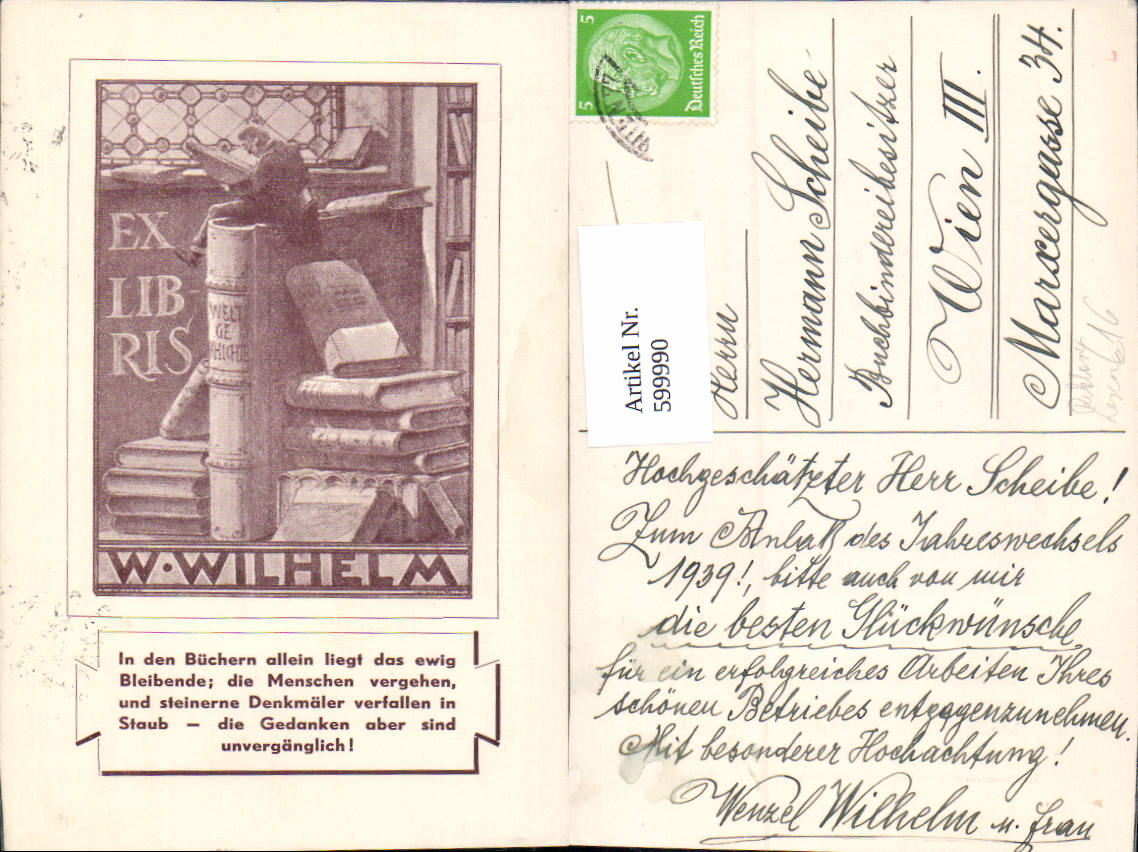 EX
LIB-
RIS
WELT
GE
SCHICHTE
W·WILHELM
In den Büchern allein liegt das ewig
Bleibende; die Menschen vergehen,
und steinerne Denkmäler verfallen in
Staub — die Gedanken aber sind
unvergänglich!
5 Deutsches Reich 5
WIEN
Artikel Nr.
599990
Herrn
Hermann Scheibe-
Buchbindereibesitzer
Wien III.
Marxergasse 34.
Hochgeschätzter Herr Scheibe!
Zum Anlaß des Jahreswechsels
1939!, bitte auch von mir
die besten Glückwünsche
für ein erfolgreiches Arbeiten Ihres
schönen Betriebes entgegenzunehmen.
Mit besonderer Hochachtung!
Wenzel Wilhelm u. Frau